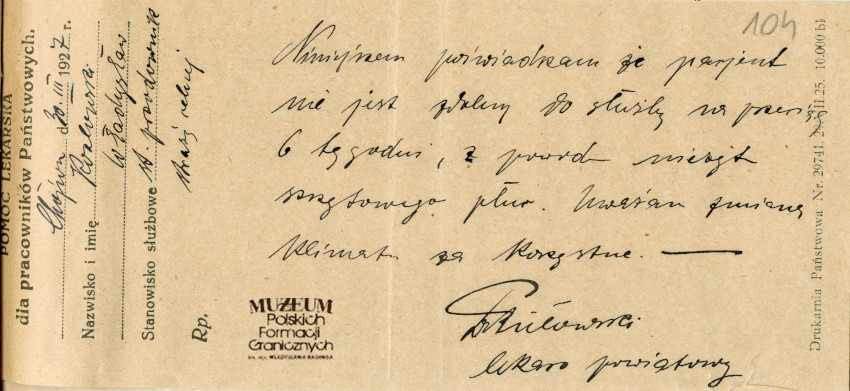 POMOC LEKARSKA
dla pracowników Państwowych.
d. 30. III 1927 r.
Nazwisko i imię Kozłowski
Władysław
Stanowisko służbowe st. przodownik
straż celnej
Rp.
104
Niniejszem poświadczam że pacjent
nie jest zdolny do służby na przeciąg
6 tygodni, z powodu nieżyt
szczytowego płuc. Uważam zmianę
klimatu za korzystne. —
lekarz powiatowy
MUZEUM
Polskich
Formacji
Granicznych
im. mjr. WŁADYSŁAWA RAGINISA
Drukarnia Państwowa Nr. 29741. III 25. 10.000 bl.